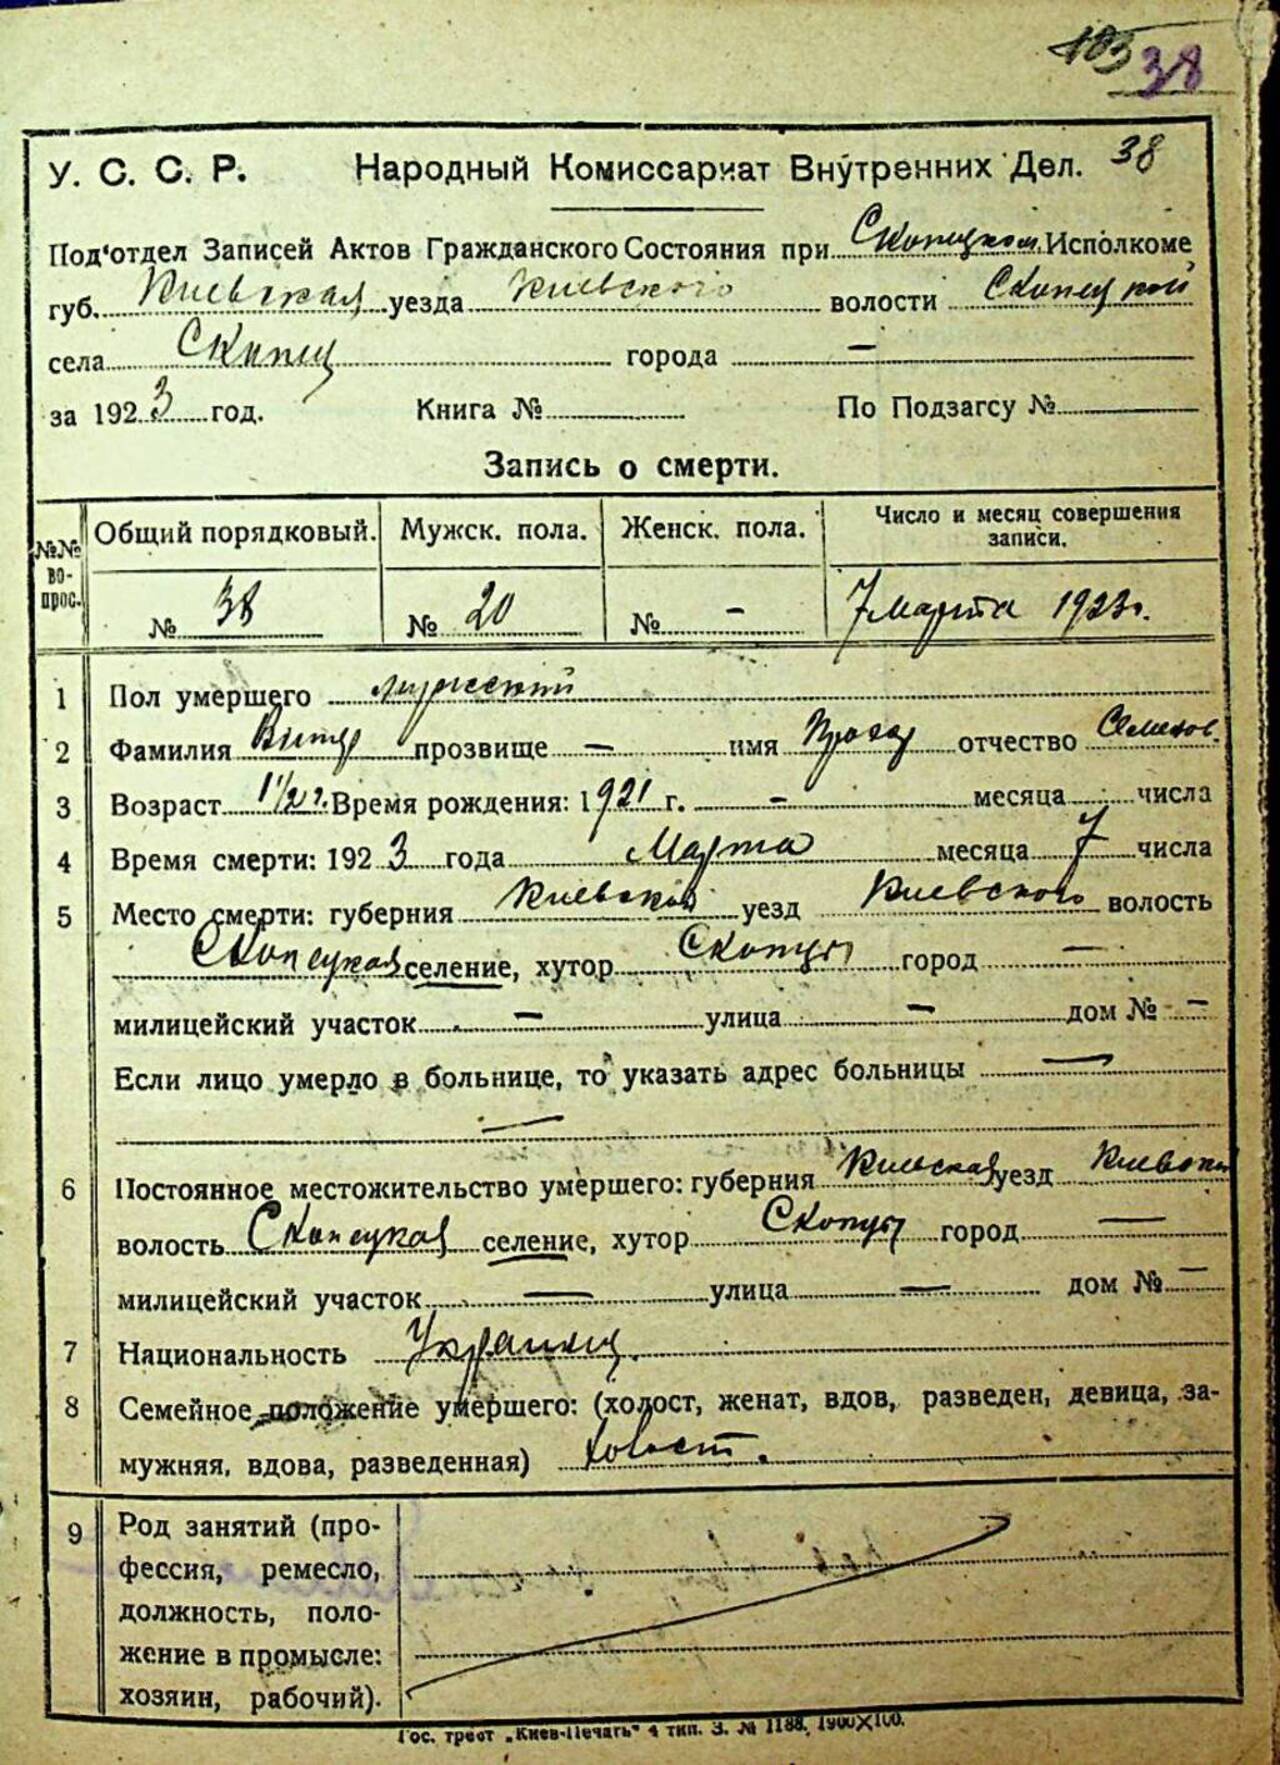 103 38
У. С. С. Р. Народный Комиссариат Внутренних Дел. 38
Под'отдел Записей Актов Гражданского Состояния при Скопецком Исполкоме
губ. Киевская уезда Киевского волости Скопецкой
села Скопцы города —
за 1923 год. Книга № По Подзагсу №
Запись о смерти.
№№ во-прос. Общий порядковый. Мужск. пола. Женск. пола. Число и месяц совершения записи.
№ 38 № 20 № - 7 марта 1923г.
1 Пол умершего мужской
2 Фамилия прозвище — имя отчество Семенов.
3 Возраст 1 1/2 г. Время рождения: 1921 г. - месяца числа
4 Время смерти: 1923 года Марта месяца 7 числа
5 Место смерти: губерния Киевской уезд Киевского волость
Скопецкая селение, хутор Скопцы город —
милицейский участок — улица — дом № —
Если лицо умерло в больнице, то указать адрес больницы —
—
6 Постоянное местожительство умершего: губерния Киевская уезд Киевский
волость Скопецкая селение, хутор Скопцы город —
милицейский участок — улица — дом № —
7 Национальность Украинец.
8 Семейное положение умершего: (холост, женат, вдов, разведен, девица, за-
мужняя, вдова, разведенная) холост.
9 Род занятий (про-
фессия, ремесло,
должность, поло-
жение в промысле:
хозяин, рабочий).
Гос. трест „Киев-Печать" 4 тип. З. № 1188. 1900X100.